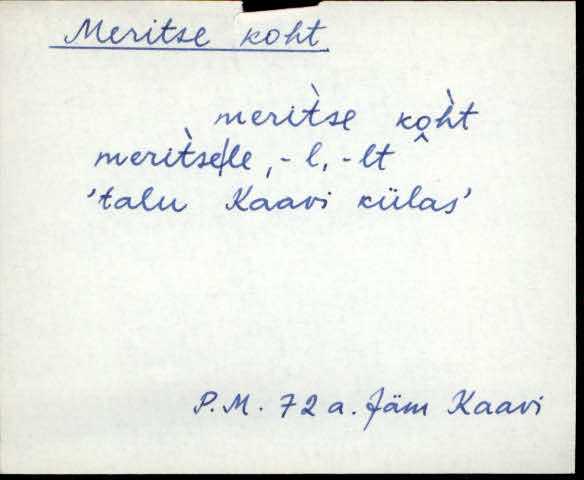 Meritse koht
meri̇̀tse ko̭h̀t
meri̇̀tse|le, -l, -lt
'talu Kaavi külas'
P.M. 72 a. Jäm Kaavi